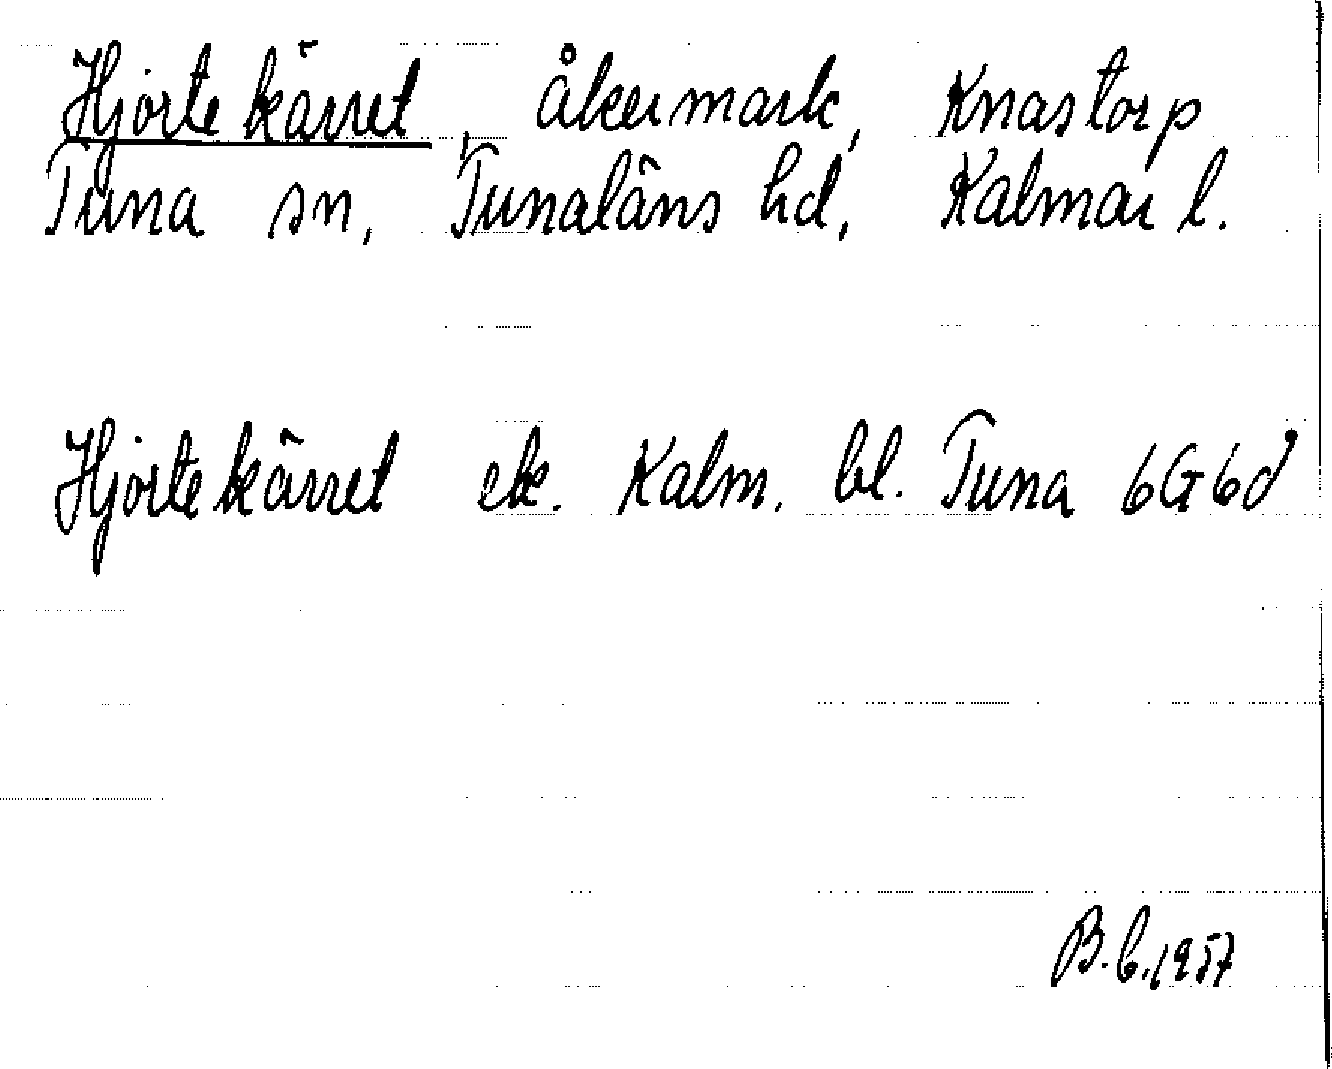 Hjortekärret, åkermark, Knastorp
Tuna sn, Tunaläns hd, Kalmar l.
Hjortekärret ek. Kalm. bl. Tuna 6G6d
B.C. 1957